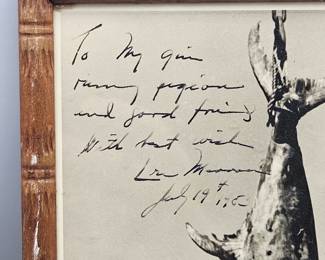 To My gin
rummy pigeon
and good friend
With best wish
July 19th